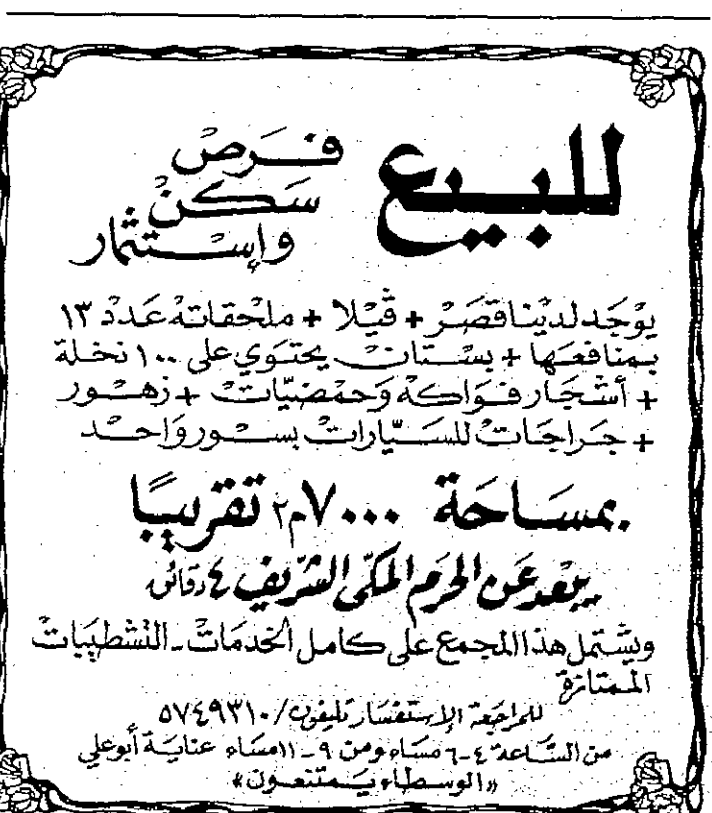 للبيع
فرص
سكن
وإستثمار
يوجد لدينا قصر + ڤيلا + ملحقاته عدد ١٣
بمنافعها + بستان يحتوي على ١٠٠ نخلة
+ أشجار فواكه وحمضيات + زهور
+ جراجات للسيارات بسور واحد
بمساحة ٧٠٠٠م٢ تقريبًا
يبعد عن الحرم المكي الشريف ٤ دقائق
ويشتمل هذا المجمع على كامل الخدمات - التشطيبات
الممتازة
للمراجعة الإستفسار تليفون/ ٥٧٤٩٣١٠
من الساعة ٤-٦ مساء ومن ٩-١١ مساء عناية أبوعلي
«الوسطاء يمتنعون»